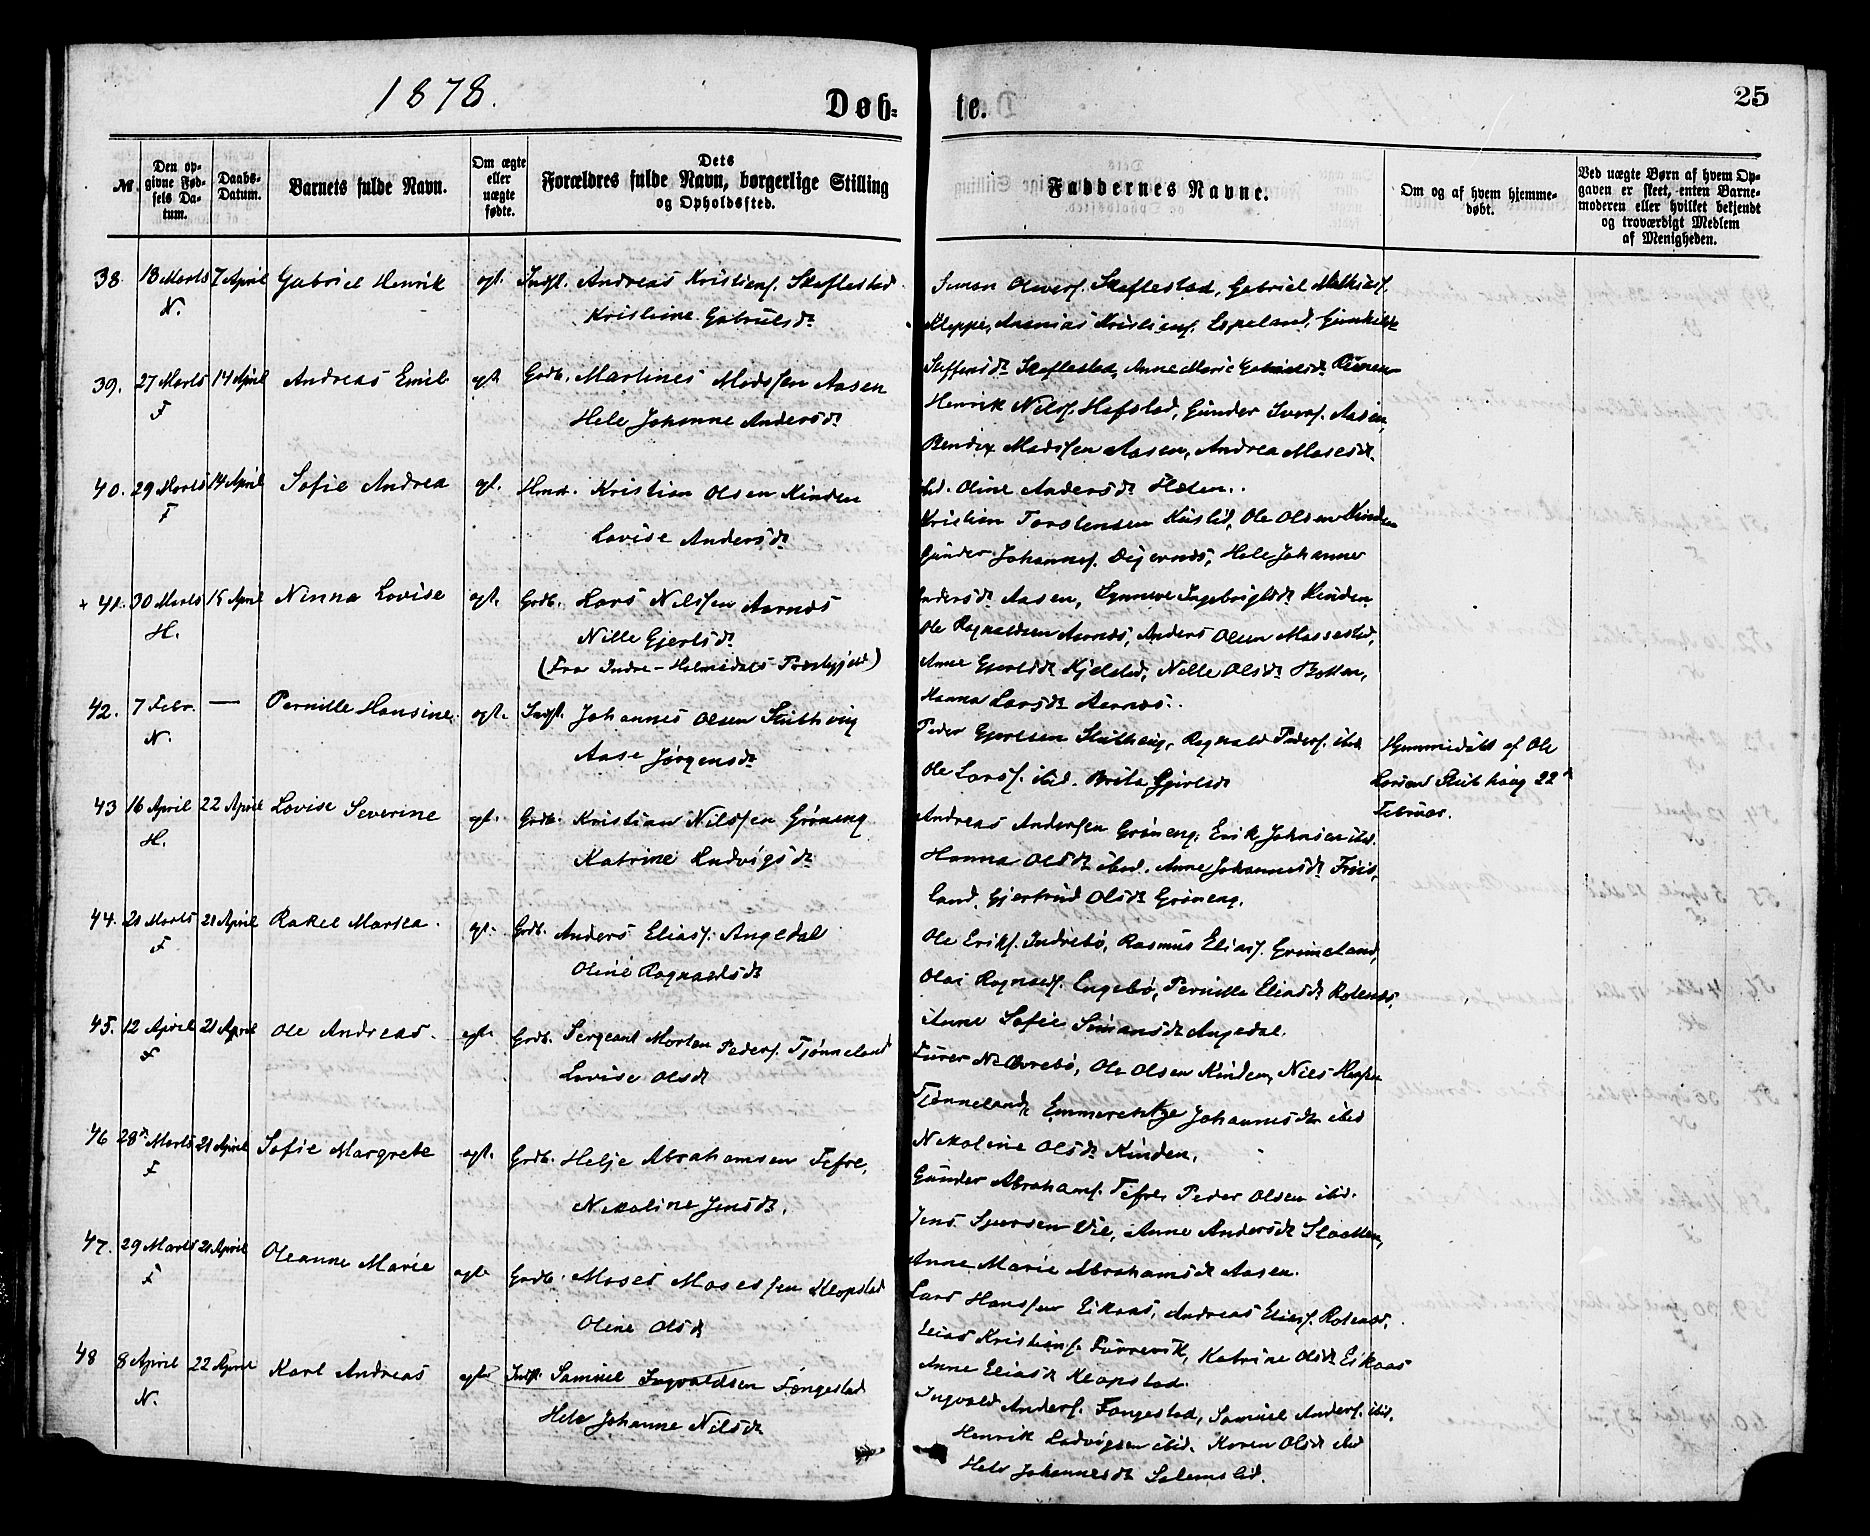 1878.
Døb-
te.
25
№
Den op-
givne Fød-
sels Da-
tum.
Daabs-
Datum.
Barnets fulde Navn.
Om ægte
eller
uægte
fødte.
Dets
Forældres fulde Navn, borgerlige Stilling
og Opholdssted.
Faddernes Navne.
Om og af hvem hjemme-
døbt.
Ved uægte Børn af hvem Op-
gaven er skeet, enten Barne-
moderen eller hvilket bekjendt
og troværdigt Medlem
af Menigheden.
38. 18 Marts 7 April Gabriel Henrik ægt. Indst. Andreas Kristiens. Skaflestad
N. Kristine Gabrielsdr
Simon Olivers. Skaflestad, Gabriel Mathias.
Kleppe, Ananias Kristiens. Espeland, Gunhilde
Steffensdr Skaflestad, Anne Marie Gabrielsdr
39. 27 Marts 14 April Andreas Emil ægt Grdb. Martines Madssen Aasen
F Hele Johanne Andersdr
Henrik Nilss. Hafstad, Gunder Ivers. Aasen,
Bendix Madssen Aasen, Andrea Mosesdr
ibd. Oline Andersdr
40. 29 Marts 14 April Sofie Andrea ægt. Hmd. Kristian Olsen Kinden
F Lovise Andersdr
Kristian Torstensen Ole Olsen Kinden
Gunder Johannes. Hele Johanne
Andersdr Aasen, Synneve Ingebrigtsdr Kinden
+ 41. 30 Marts 15 April Ninna Lovise ægt. Grdb. Lars Nilssen Aarnæs
H. Nille Gjertsdr
(Fra Indre-Holmedals Præstegjeld)
Ole Ragnaldsen Aarnæs, Anders Olsen Massestad,
Anne Gjertsdr Kjelstad, Nille Olsdr Botten,
Hanna Larsdr Aarnæs.
42. 7 Febr. — Pernille Hansine ægt. Indst. Johannes Olsen
N. Aase Jørgensdr
Peder Gjertsen Ragnald Peders. ibd
Ole Larss. ibid. Brita Gjertsdr
Hjemmedøbt af Ole
Larsen 22de
Februar.
43 16 April 22 April Lovise Severine ægt. Grdb. Kristian Nilssen Grøneng
H. Katrine Ludvigsdr
Andreas Andersen Grøneng, Erik Johnsen ibd.
Hanna Olsdr ibid. Anne Johannesdr
land, Gjertrud Olsdr Grøneng.
44. 21 Marts 21 April Rakel Martea ægt. Grdb. Anders Eliass. Angedal
F Oline Ragnaldsdr
Ole Eriks. Indrebø, Rasmus Eliass. Grimeland,
Olai Ragnalds. Engebø, Pernille Eliasdr Rotenæs,
Anne Sofie Simonsdr Angedal.
45. 12 April 21 April Ole Andreas ægt. Grdb. Sergeant Morten Peders. Tjønneland
F Lovise Olsdr
Furer N. Øvrebø, Ole Olsen Kinden, Nils
Tjønneland, Emmerentze Johannesdr ibid
Nikoline Olsdr Kinden.
46 28de Marts 21 April Sofie Margrete ægt. Grdb. Helje Abrahamsen Tefre,
F Nikoline Jensdr.
Gunder Abrahams. Tefre, Peder Olsen ibid.
Jens Sjursen Vie, Anne Andersdr
Anne Marie Abrahamsdr Aasen.
47. 29 Marts 21 April Oleanne Marie ægt. Grdb. Moses Mosessen Klopstad
F Oline Olsdr
Lars Hanssen Eikaas, Andreas Eliass. Rotenæs,
Elias Kristians. Furrevik, Katrine Olsdr Eikaas
Anne Eliasdr Klopstad.
48 8 April 22 April Karl Andreas ægt. Indst. Samuel Ingvaldsen Fongestad
N. Hele Johanne Nilsdr
Ingvald Anders. Fongestad, Samuel Anders. ibd.
Henrik Ludvigsen ibid. Karen Olsdr ibd
Hele Johannesdr